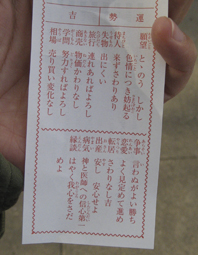 運勢吉
願望 とゝのう しかし
色情につき妨起る
待人 来ずさわりあり
失物 出にくい
旅行 連れあればよろし
商売 物価かわりなし
学問 努力すればよろし
相場 売り買い変化なし
争事 言わぬがよい勝ち
恋愛 よく見定めて進め
転居 さわりなし吉
出産 安し 安心せよ
病気 神と医師への信心第一
縁談 はやく我心をさだ
めよ